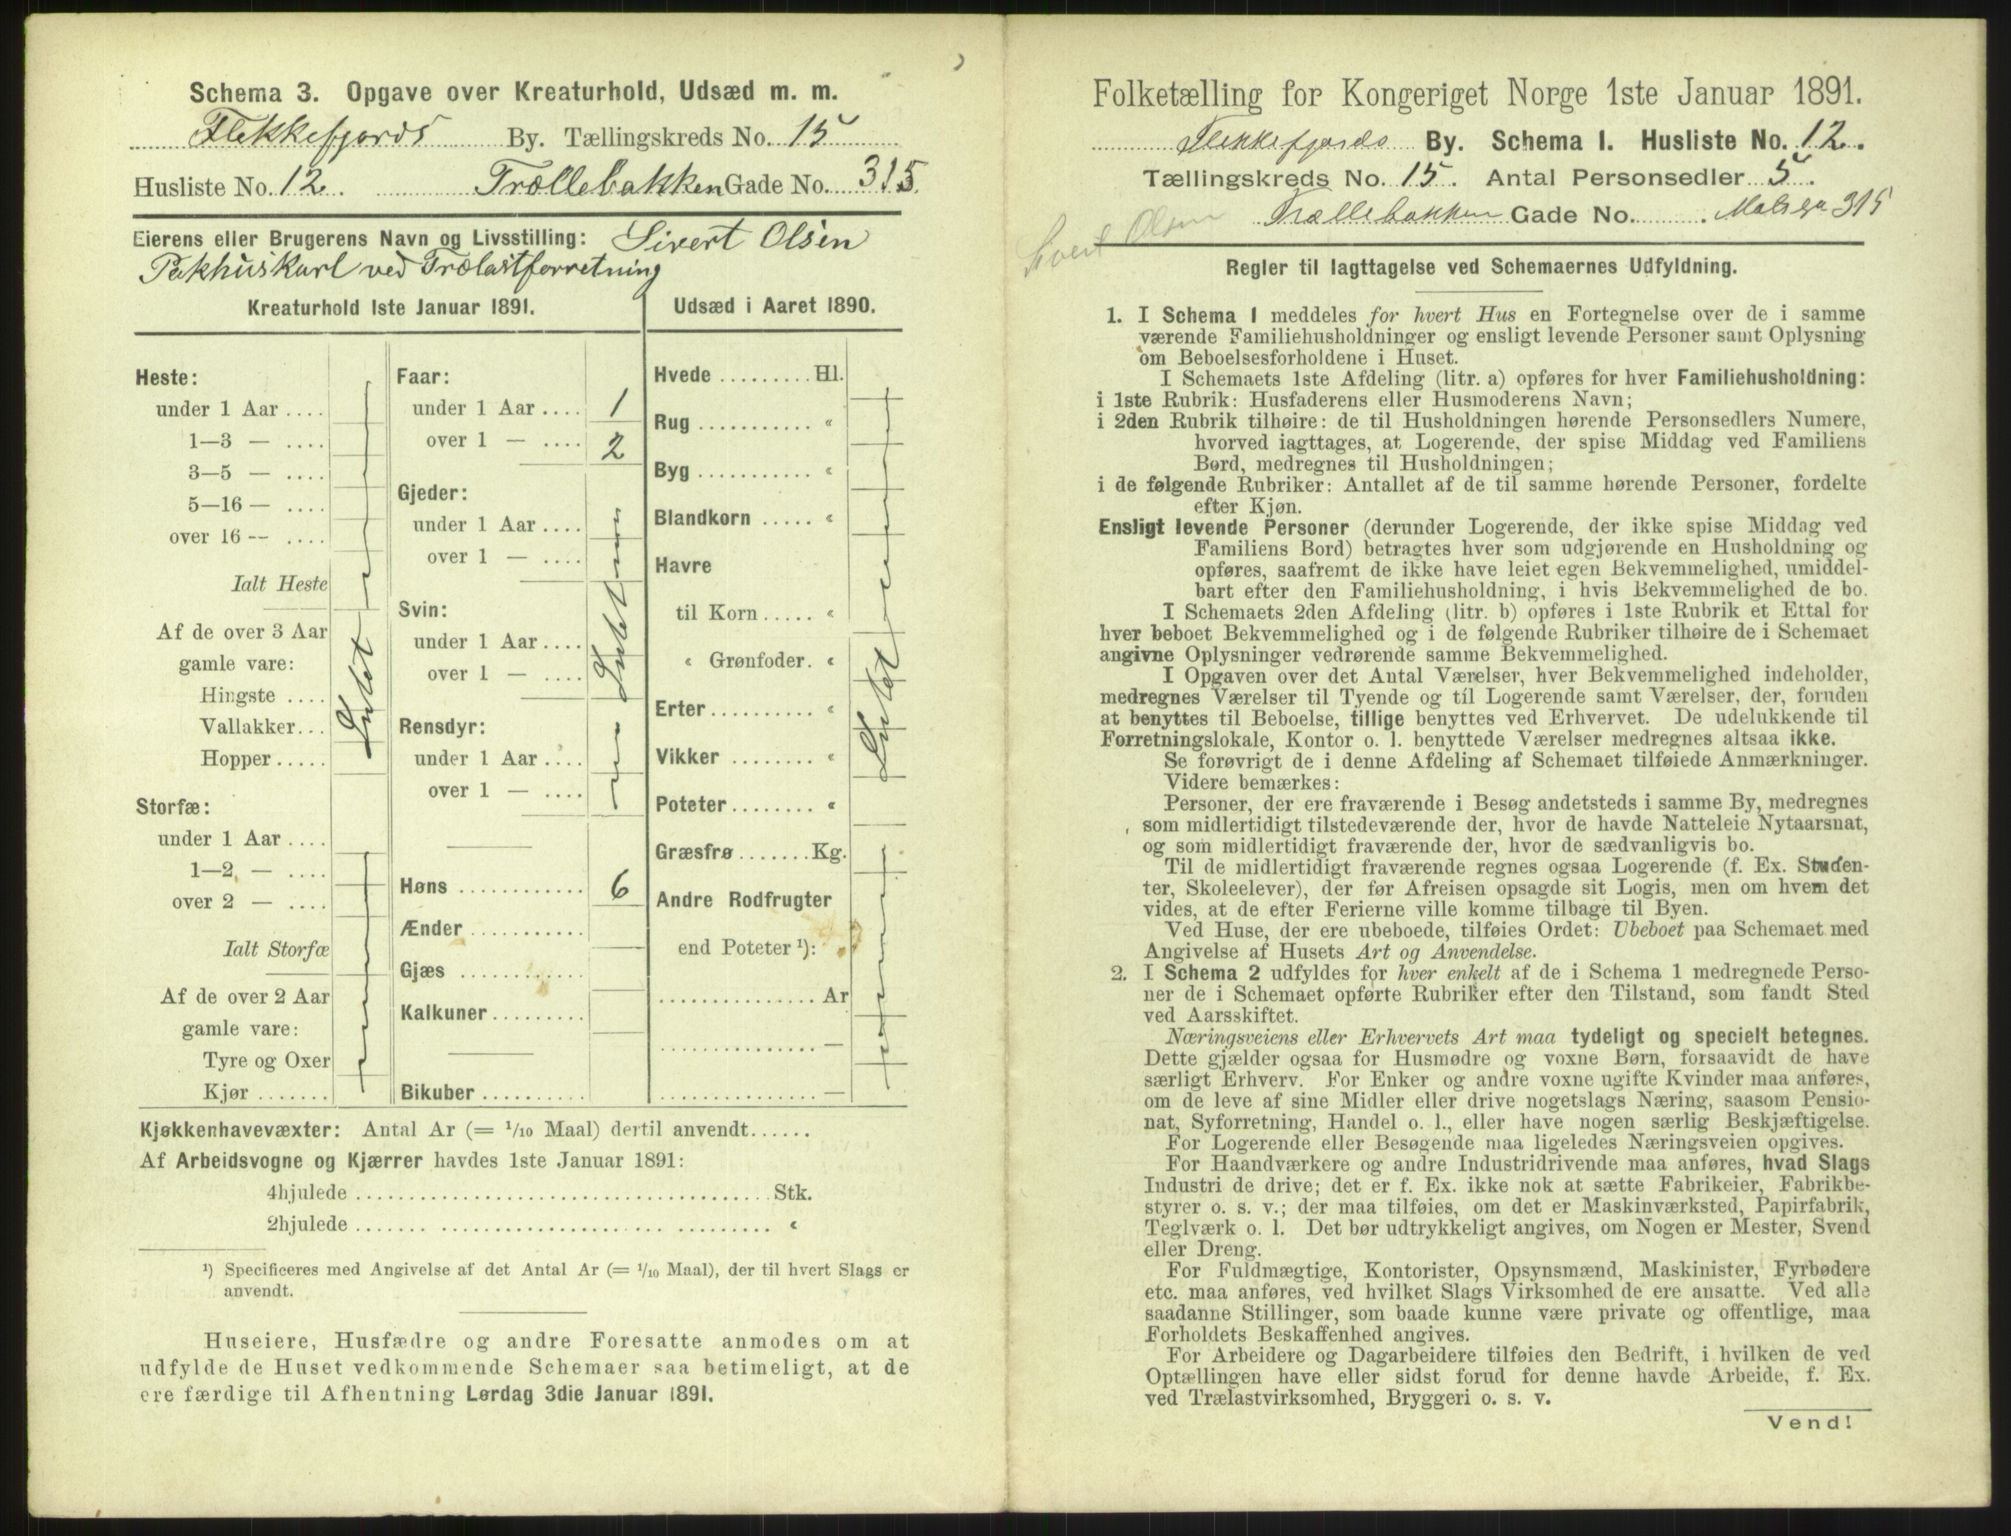 Schema 3. Opgave over Kreaturhold, Udsæd m. m.
Flekkefjords By. Tællingskreds No. 15
Husliste No. 12. Trællebakken Gade No. 315.
Eierens eller Brugerens Navn og Livsstilling: Sivert Olsen
Pakhuskarl ved Trælastforretning
Kreaturhold 1ste Januar 1891.
Heste:
under 1 Aar ....
1—3 — ....
3—5 — ....
5—16 — ....
over 16 — ....
Ialt Heste
Af de over 3 Aar
gamle vare:
Hingste ....
Vallakker...
Hopper .....
Intet
Storfæ:
under 1 Aar ....
1—2 — ....
over 2 — ....
Ialt Storfæ
Af de over 2 Aar
gamle vare:
Tyre og Oxer
Kjør .......
Faar:
under 1 Aar .... 1
over 1 — .... 2
Gjeder:
under 1 Aar ....
over 1 — ....
Svin:
under 1 Aar ....
over 1 — ....
Intet
Rensdyr:
under 1 Aar ....
over 1 — ....
Høns ............ 6
Ænder ...........
Gjæs ............
Kalkuner.........
Bikuber ..........
Udsæd i Aaret 1890.
Hvede ......... Hl.
Rug ........... «
Byg ........... «
Blandkorn ..... «
Havre
til Korn ..... «
« Grønfoder. «
Erter.......... «
Vikker ........ «
Poteter........ «
Intet
Græsfrø.......Kg.
Andre Rodfrugter
end Poteter ¹):
............... Ar
............... —
............... —
Kjøkkenhavevæxter: Antal Ar (= 1/10 Maal) dertil anvendt......
Af Arbeidsvogne og Kjærrer havdes 1ste Januar 1891:
4hjulede ..................................... Stk.
2hjulede ..................................... «
¹) Specificeres med Angivelse af det Antal Ar (= 1/10 Maal), der til hvert Slags er
anvendt.
Huseiere, Husfædre og andre Foresatte anmodes om at
udfylde de Huset vedkommende Schemaer saa betimeligt, at de
ere færdige til Afhentning Lørdag 3die Januar 1891.
Folketælling for Kongeriget Norge 1ste Januar 1891.
Flekkefjords By. Schema I. Husliste No. 12.
Tællingskreds No. 15. Antal Personsedler 5.
Sivert Olsen Trællebakken Gade No. ........ 315
Regler til Iagttagelse ved Schemaernes Udfyldning.
1. I Schema 1 meddeles for hvert Hus en Fortegnelse over de i samme
værende Familiehusholdninger og ensligt levende Personer samt Oplysning
om Beboelsesforholdene i Huset.
I Schemaets 1ste Afdeling (litr. a) opføres for hver Familiehusholdning:
i 1ste Rubrik: Husfaderens eller Husmoderens Navn;
i 2den Rubrik tilhøire: de til Husholdningen hørende Personsedlers Numere,
hvorved iagttages, at Logerende, der spise Middag ved Familiens
Bord, medregnes til Husholdningen;
i de følgende Rubriker: Antallet af de til samme hørende Personer, fordelte
efter Kjøn.
Ensligt levende Personer (derunder Logerende, der ikke spise Middag ved
Familiens Bord) betragtes hver som udgjørende en Husholdning og
opføres, saafremt de ikke have leiet egen Bekvemmelighed, umiddel-
bart efter den Familiehusholdning, i hvis Bekvemmelighed de bo.
I Schemaets 2den Afdeling (litr. b) opføres i 1ste Rubrik et Ettal for
hver beboet Bekvemmelighed og i de følgende Rubriker tilhøire de i Schemaet
angivne Oplysninger vedrørende samme Bekvemmelighed.
I Opgaven over det Antal Værelser, hver Bekvemmelighed indeholder,
medregnes Værelser til Tyende og til Logerende samt Værelser, der, foruden
at benyttes til Beboelse, tillige benyttes ved Erhvervet. De udelukkende til
Forretningslokale, Kontor o. l. benyttede Værelser medregnes altsaa ikke.
Se forøvrigt de i denne Afdeling af Schemaet tilføiede Anmærkninger.
Videre bemærkes:
Personer, der ere fraværende i Besøg andetsteds i samme By, medregnes
som midlertidigt tilstedeværende der, hvor de havde Natteleie Nytaarsnat,
og som midlertidigt fraværende der, hvor de sædvanligvis bo.
Til de midlertidigt fraværende regnes ogsaa Logerende (f. Ex. Studen-
ter, Skoleelever), der før Afreisen opsagde sit Logis, men om hvem det
vides, at de efter Ferierne ville komme tilbage til Byen.
Ved Huse, der ere ubeboede, tilføies Ordet: Ubeboet paa Schemaet med
Angivelse af Husets Art og Anvendelse.
2. I Schema 2 udfyldes for hver enkelt af de i Schema 1 medregnede Perso-
ner de i Schemaet opførte Rubriker efter den Tilstand, som fandt Sted
ved Aarsskiftet.
Næringsveiens eller Erhvervets Art maa tydeligt og specielt betegnes.
Dette gjælder ogsaa for Husmødre og voxne Børn, forsaavidt de have
særligt Erhverv. For Enker og andre voxne ugifte Kvinder maa anføres,
om de leve af sine Midler eller drive nogetslags Næring, saasom Pensio-
nat, Syforretning, Handel o. l., eller have nogen særlig Beskjæftigelse.
For Logerende eller Besøgende maa ligeledes Næringsveien opgives.
For Haandværkere og andre Industridrivende maa anføres, hvad Slags
Industri de drive; det er f. Ex. ikke nok at sætte Fabrikeier, Fabrikbe-
styrer o. s. v.; der maa tilføies, om det er Maskinværksted, Papirfabrik,
Teglværk o. l. Det bør udtrykkeligt angives, om Nogen er Mester, Svend
eller Dreng.
For Fuldmægtige, Kontorister, Opsynsmænd, Maskinister, Fyrbødere
etc. maa anføres, ved hvilket Slags Virksomhed de ere ansatte. Ved alle
saadanne Stillinger, som baade kunne være private og offentlige, maa
Forholdets Beskaffenhed angives.
For Arbeidere og Dagarbeidere tilføies den Bedrift, i hvilken de ved
Optællingen have eller sidst forud for denne havde Arbeide, f. Ex.
ved Trælastvirksomhed, Bryggeri o. s. v.
Vend!